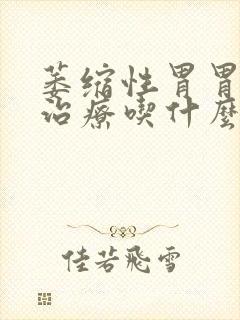 萎缩性胃胃
治療喫什麽
佳若飛雪